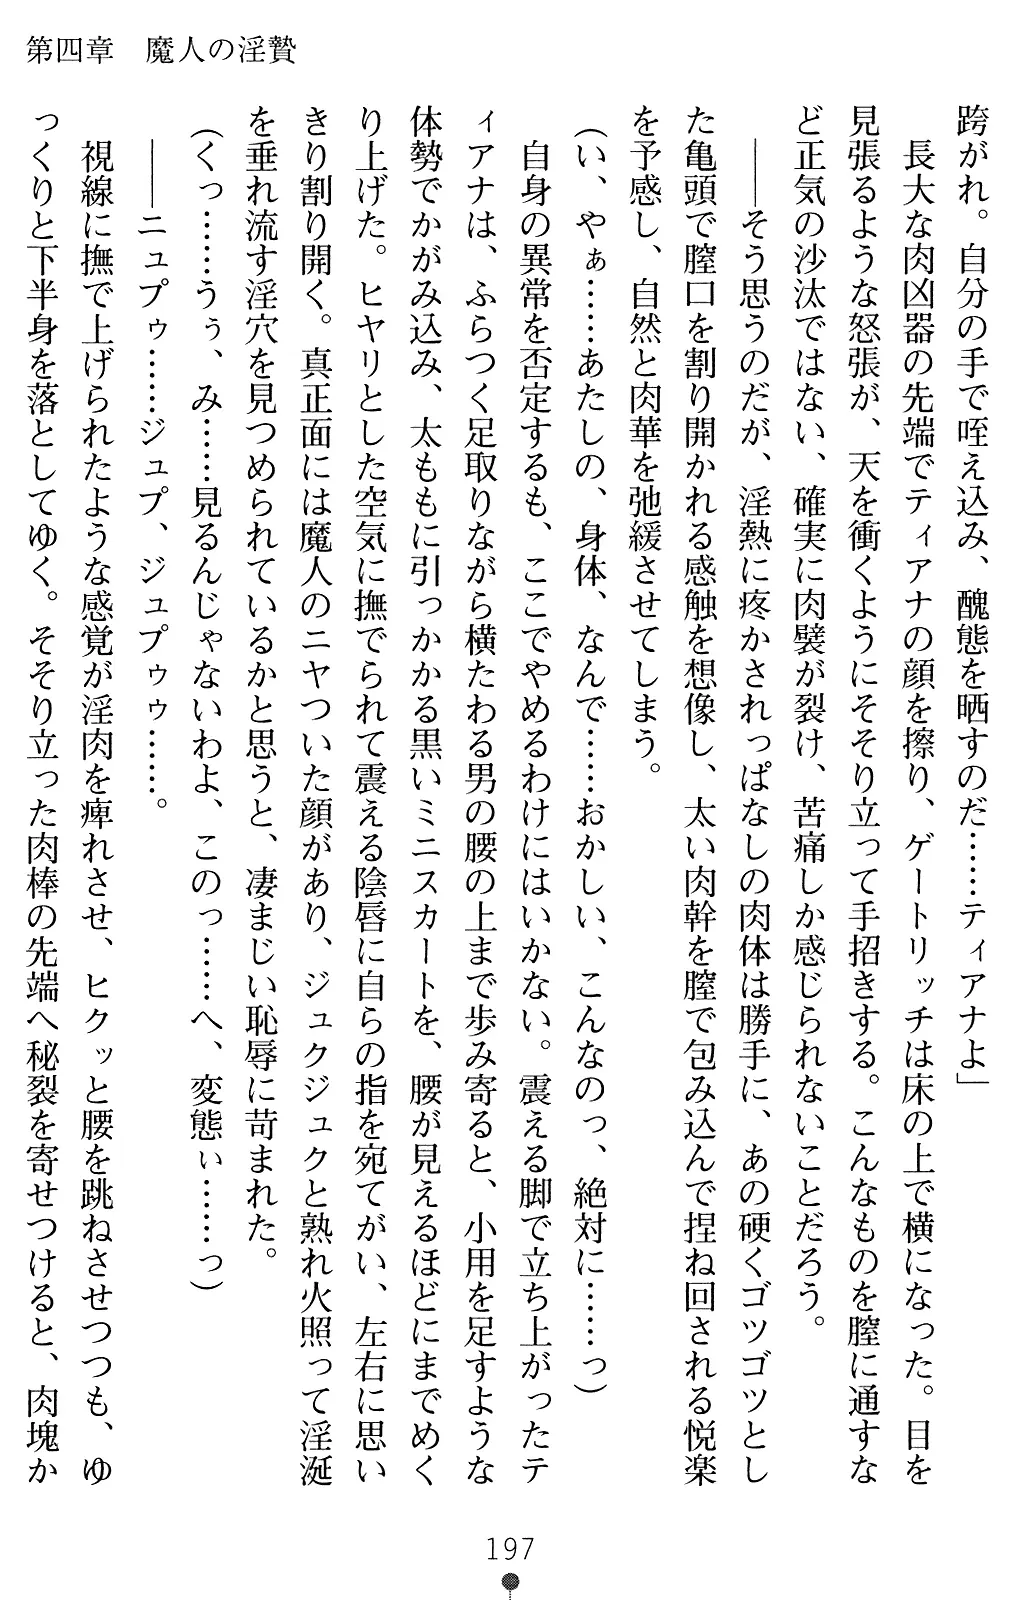 第四章　魔人の淫贄
跨がれ。自分の手で咥え込み、醜態を晒すのだ……ティアナよ」
長大な肉凶器の先端でティアナの顔を擦り、ゲートリッチは床の上で横になった。目を
見張るような怒張が、天を衝くようにそそり立って手招きする。こんなものを膣に通すな
ど正気の沙汰ではない、確実に肉襞が裂け、苦痛しか感じられないことだろう。
――そう思うのだが、淫熱に疼かされっぱなしの肉体は勝手に、あの硬くゴツゴツとし
た亀頭で膣口を割り開かれる感触を想像し、太い肉幹を膣で包み込んで捏ね回される悦楽
を予感し、自然と肉華を弛緩させてしまう。
（い、やぁ……あたしの、身体、なんで……おかしい、こんなのっ、絶対に……っ）
自身の異常を否定するも、ここでやめるわけにはいかない。震える脚で立ち上がったテ
ィアナは、ふらつく足取りながら横たわる男の腰の上まで歩み寄ると、小用を足すような
体勢でかがみ込み、太ももに引っかかる黒いミニスカートを、腰が見えるほどにまでめく
り上げた。ヒヤリとした空気に撫でられて震える陰唇に自らの指を宛てがい、左右に思い
きり割り開く。真正面には魔人のニヤついた顔があり、ジュクジュクと熟れ火照って淫涎
を垂れ流す淫穴を見つめられているかと思うと、凄まじい恥辱に苛まれた。
（くっ……うぅ、み……見るんじゃないわよ、このっ……へ、変態ぃ……っ）
――ニュプゥ……ジュプ、ジュプゥゥ……。
視線に撫で上げられたような感覚が淫肉を痺れさせ、ヒクッと腰を跳ねさせつつも、ゆ
っくりと下半身を落としてゆく。そそり立った肉棒の先端へ秘裂を寄せつけると、肉塊か
197